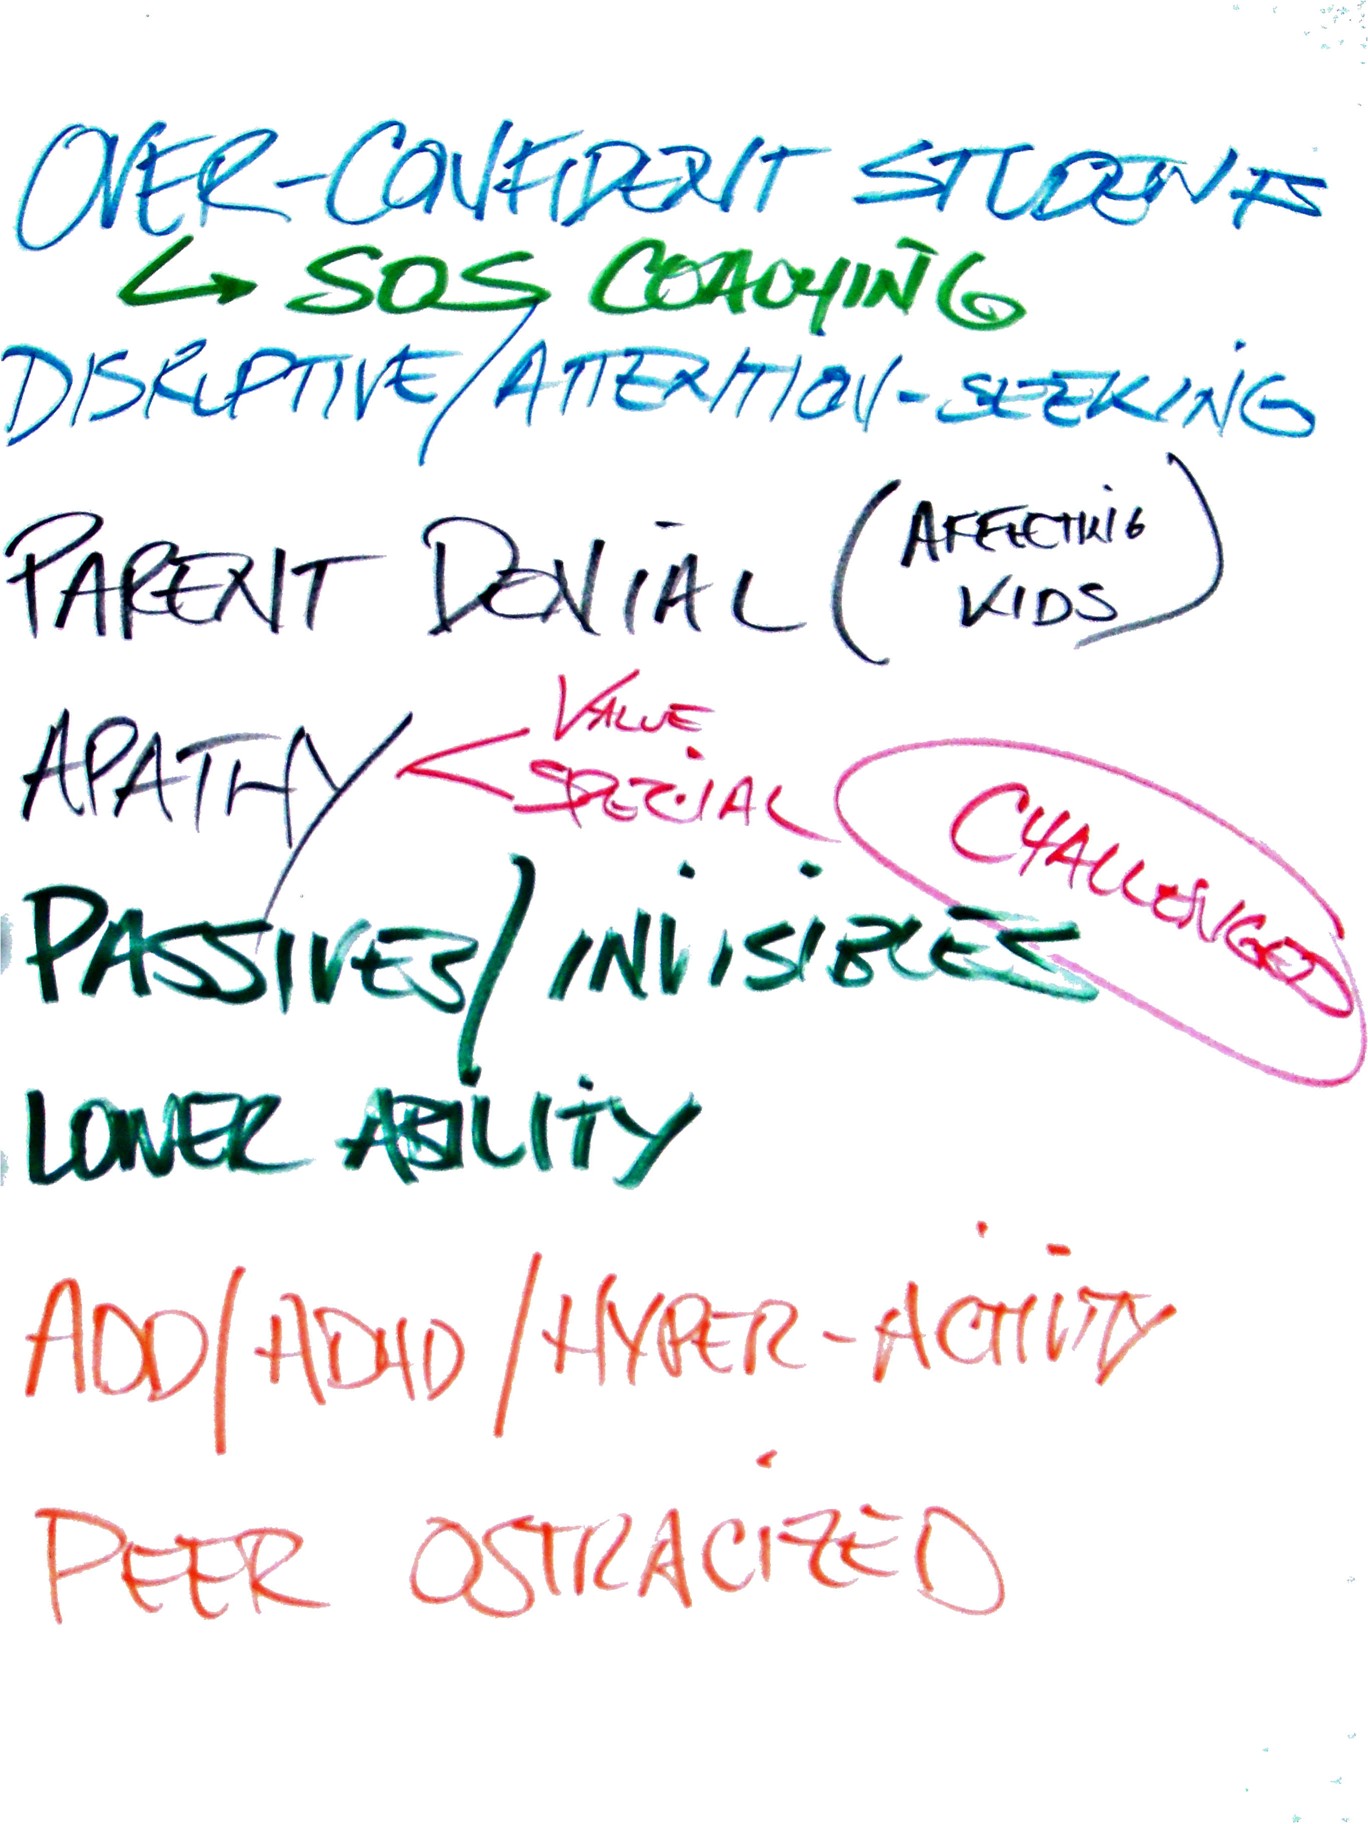 OVER-CONFIDENT STUDENTS
↳ SOS COACHING
DISRUPTIVE/ATTENTION-SEEKING
PARENT DENIAL (AFFECTING
KIDS)
VALUE
APATHY < SPECIAL
CHALLENGED
PASSIVES/INVISIBLES
LOWER ABILITY
ADD/ADHD/HYPER-ACTIVITY
PEER OSTRACIZED